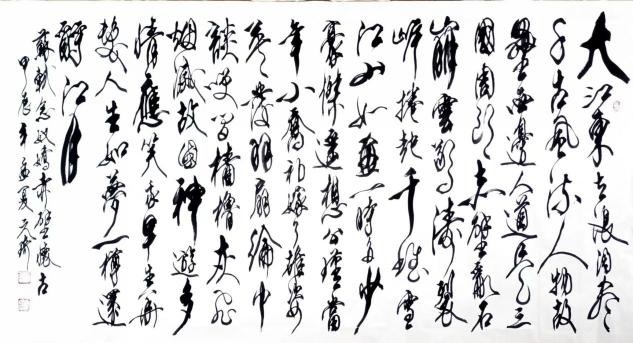 大江東去浪淘盡
千古風流人物故
壘西邊人道是三
國周郎赤壁亂石
崩雲驚濤裂
岸捲起千堆雪
江山如畫一時多少
豪傑遙想公瑾當
年小喬初嫁了雄姿
英發羽扇綸巾
談笑間檣櫓灰飛
烟滅故國神遊多
情應笑我早生華
髮人生如夢一樽還
酹江月
蘇軾念奴嬌赤壁懷古
甲辰年孟夏